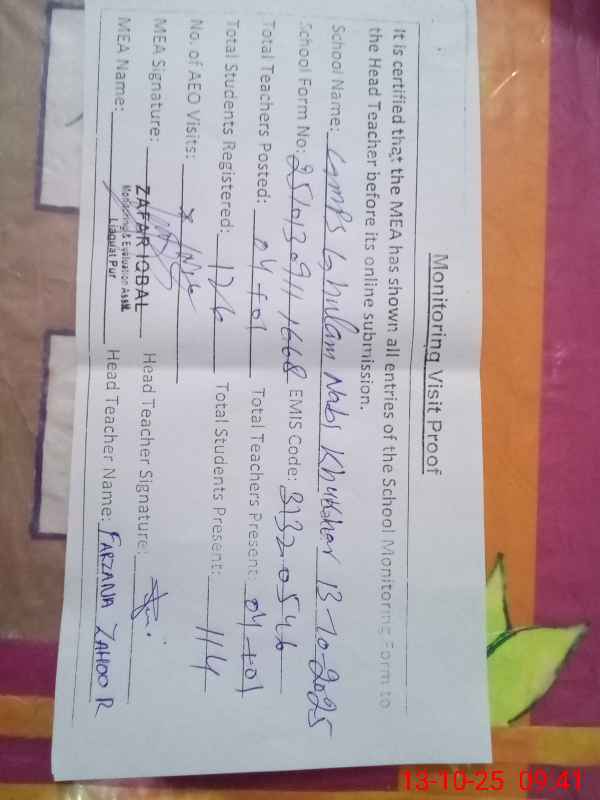 Monitoring Visit Proof
It is certified that the MEA has shown all entries of the School Monitoring Form to
the Head Teacher before its online submission.
School Name: GMPS Ghulam Nabi Khukhar 13-10-2025
School Form No: EMIS Code: 31320546
Total Teachers Posted: 04+01 Total Teachers Present: 04+01
Total Students Registered: 126 Total Students Present: 114
No. of AEO Visits:
MEA Signature: Head Teacher Signature:
ZAFAR IQBAL
Monitoring & Evaluation Asstt.
Liaquat Pur
MEA Name: Head Teacher Name: FARZANA ZAHOOR
13-10-25 09:41